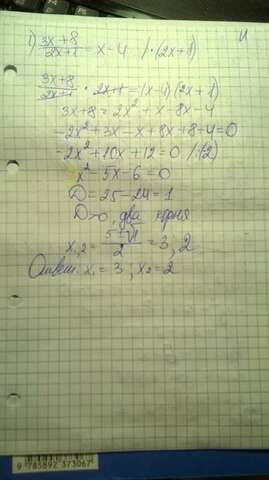 1) (3x+8)/(2x+1) = x-4 /·(2x+1)
(3x+8)/(2x+1) · 2x+1 = (x-4)(2x+1)
3x+8 = 2x²+x-8x-4
-2x²+3x-x+8x+8+4=0
-2x²+10x+12=0 /:(2)
x²-5x-6=0
D=25-24=1
D>0, два корня
x₁,₂ = (5±√1)/2 = 3, 2
Ответ: x₁=3; x₂=2
9 785892 373067